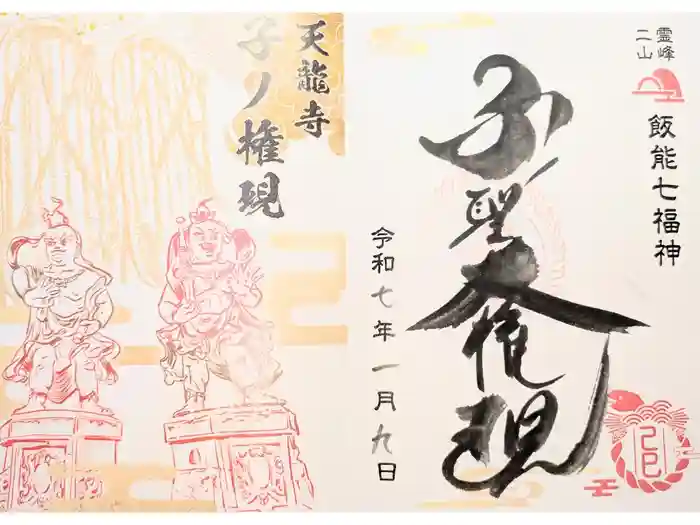 霊峰
二山
飯能七福神
子聖大権現
令和七年一月九日
巳
天龍寺
子ノ権現